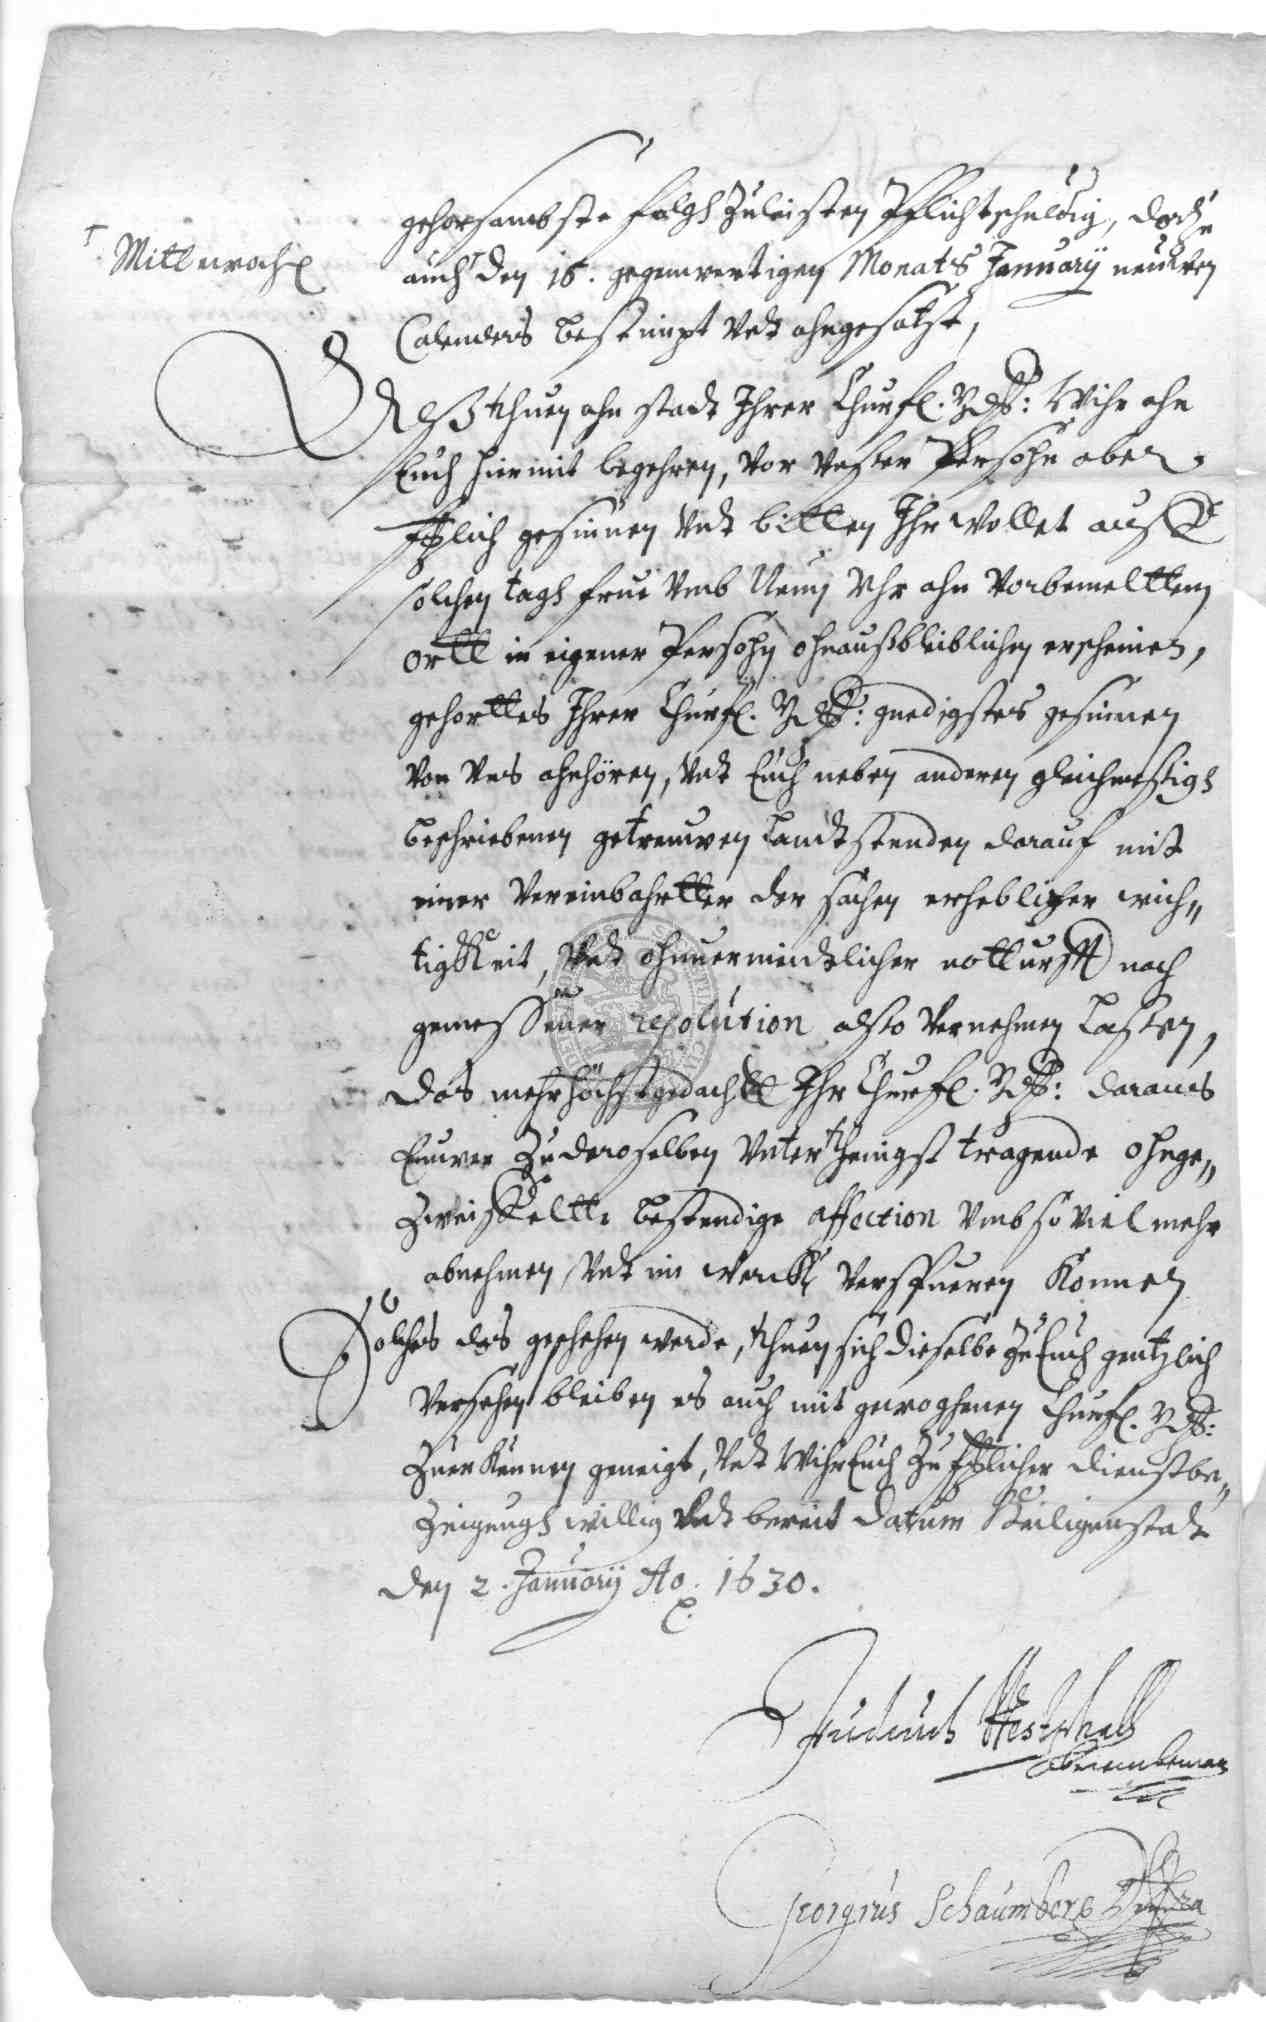 gehorsambste folgh Zuleisten Pflichtschuldig, darZu
† Mittwoch
auch † den 16. gegenwertigen Monats January newen
Calenders bestimpt Vndt ahngesatzt,
Alß thuen ahn stadt Ihrer Churfl. Wihr ahn
Euch hiermit begehren, Vor Vnßer Persohn aber
gesinnen Vndt bitten Ihr wollet auff
solchen tagh frue Vmb Neun Vhr ahn Vorbemelttem
ortt in eigener Persohn ohnaußbleiblichen erscheinen,
gehorttes Ihrer Churfl. gnedigstes gesinnen
Von Vns ahnhören, Vndt Euch neben anderen gleichmeßigh
beschriebenen getreuwen Landtstenden darauf mit
einer Vereinbahrtter der sachen erheblicher wich„
tigkeit, Vndt ohnuermeidtlicher notturfft nach
gemessener resolution also Vernehmen Lassen,
das mehrhöchstgedachtt Ihr Churfl. daraus
Euwer Zu deroselben Vnterthenigst tragende ohnge„
Zweiffeltte bestendige affection Vmb so viel mehr
abnehmen Vndt im werck Verspueren Konnen
Solches das geschehen werde, thuen sich dieselbe Zu Euch gentzlich
Versehen bleiben es auch mit gewoghenen Churfl.
ZuerKennen geneigt, Vndt Wihr Euch Zu dienstbe„
Zeigungh willig Vndt bereit Datum Heiligenstadt
den 2. January Ao. 1630.
Westphall
Georgius Schaumbergk